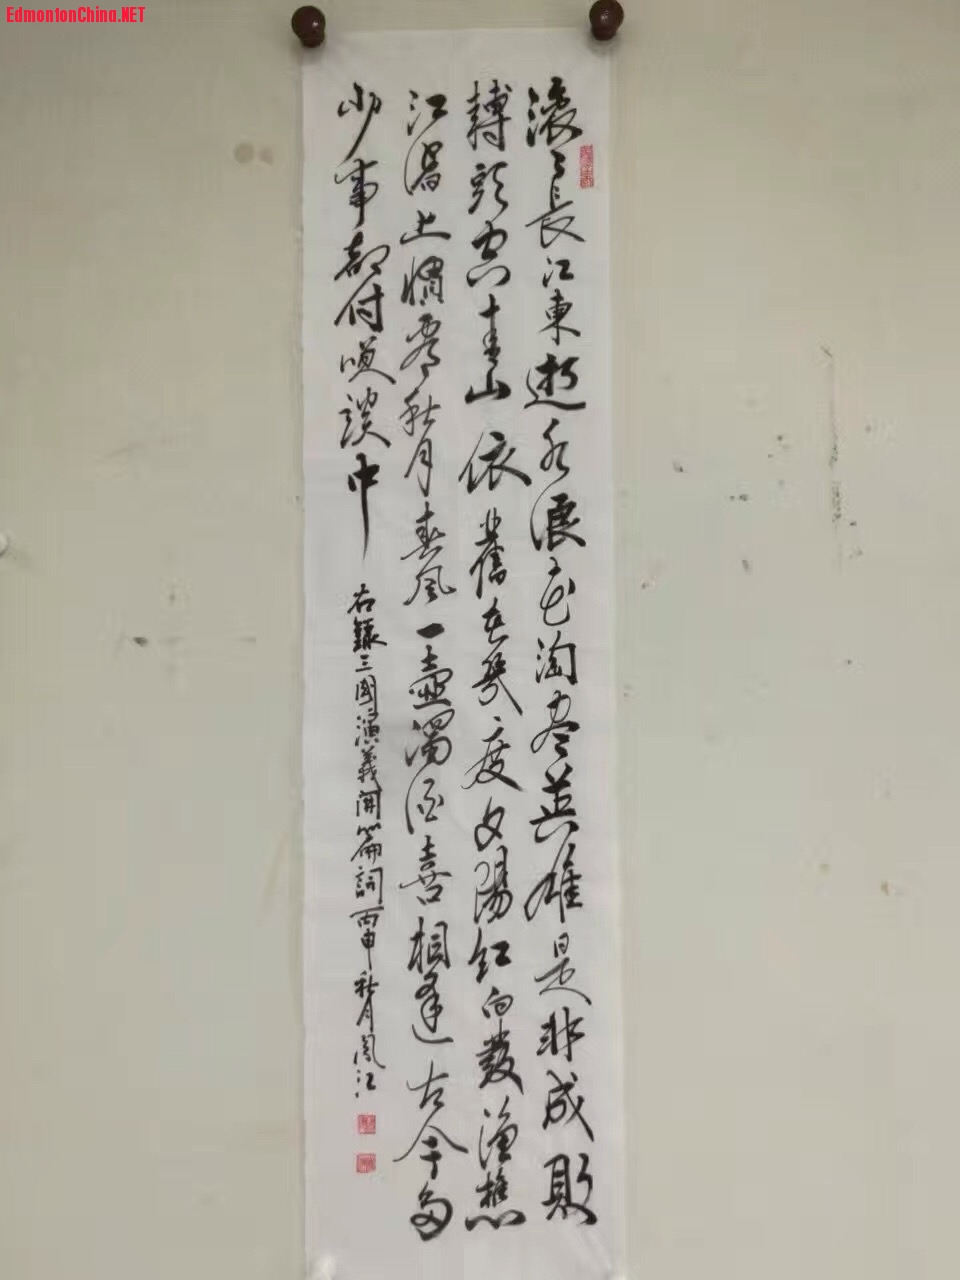 EdmontonChina.NET
滚〻長江東逝水浪花淘尽英雄是非成敗
轉頭空青山依舊在幾度夕陽紅白發漁樵
江渚上慣看秋月春風一壺濁酒喜相逢古今多
少事都付咲談中
右錄三國演義開篇詞丙申秋月江